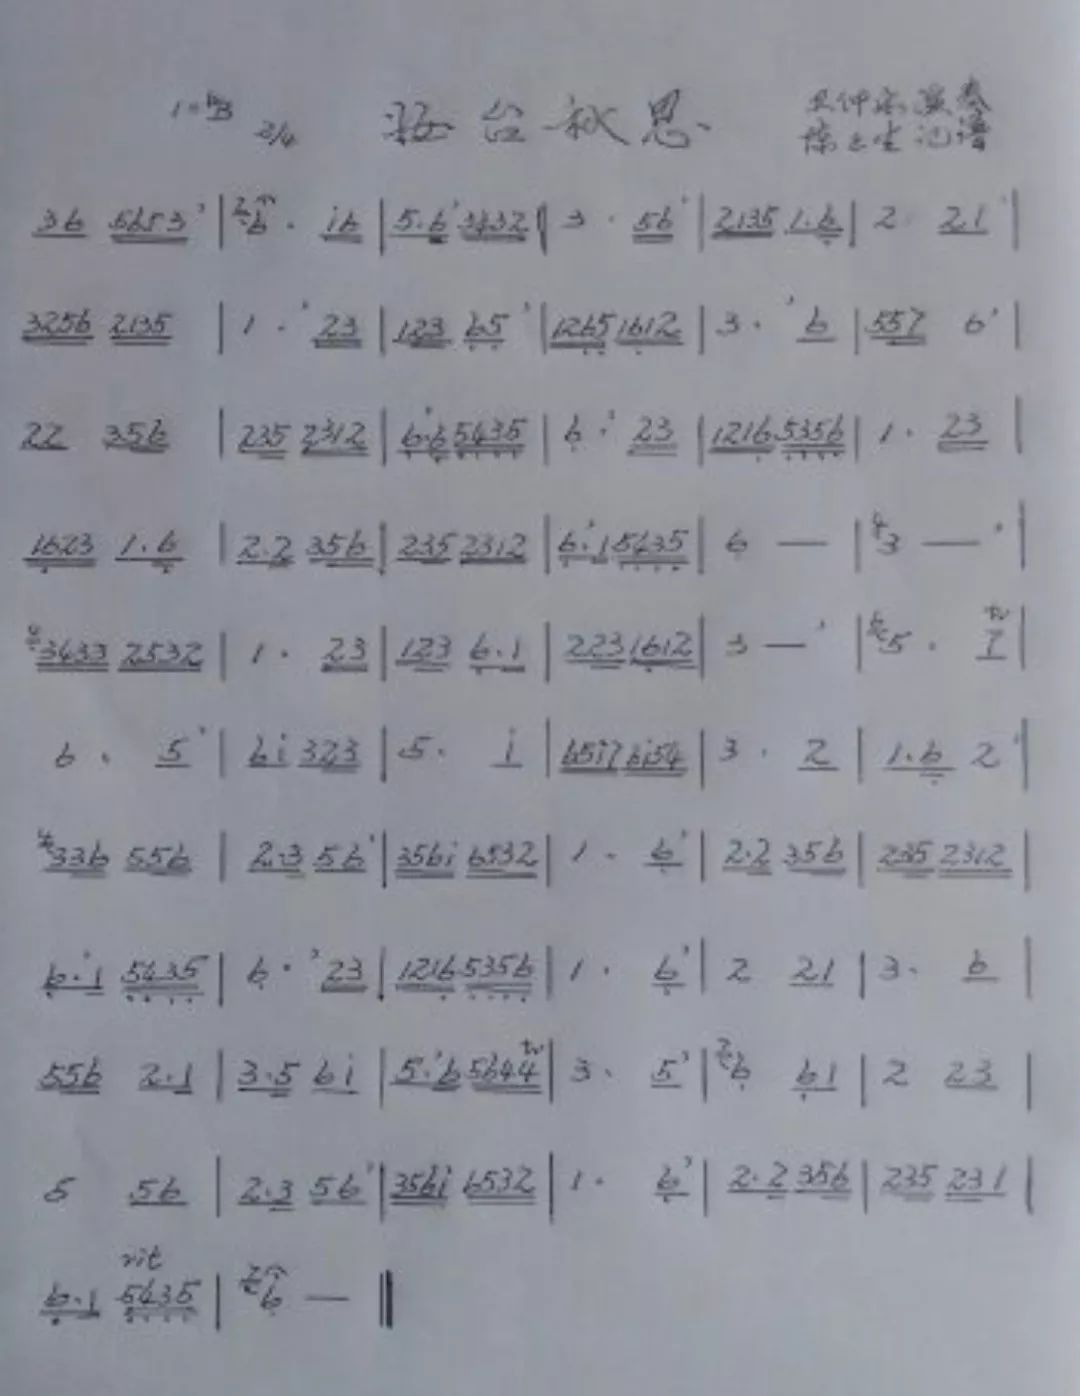 1=♭B 2/4 妆台秋思 王仲宗演奏
陈玉生记谱
36 5653' | 6 · i6 | 5.6' 3432 | 3 · 56' | 2135 1.6 | 2 · 21' |
3256 2135 | 1 · ' 23 | 123 65' | 1265 1612 | 3 · ' 6 | 557 6' |
22 356 | 235 2312 | 6.'6 5435 | 6 · ' 23 | 1216 5356 | 1 · 23 |
1623 1.6 | 2.2 356 | 235 2312 | 6.'1 5435 | 6 — | 3 — ' |
3433 2532 | 1 · 23 | 123 6.1 | 223 1612 | 3 — ' | 5 · 7 |
6 · 5' | 6i 323 | 5 · i | 65i7 6i54 | 3 · 2 | 1.6 2' |
336 556 | 2.3 56' | 356i 6532 | 1 · 6' | 2.2 356 | 235 2312 |
6.'1 5435 | 6 · ' 23 | 1216 5356 | 1 · 6' | 2 21 | 3 · 6 |
556 2.1 | 3.5 6i | 5.'6 5644 | 3 · 5' | 6 61 | 2 23 |
5 56 | 2.3 56' | 356i 6532 | 1 · 6' | 2.2 356 | 235 231 |
rit
6.1 5435 | 6 — ‖